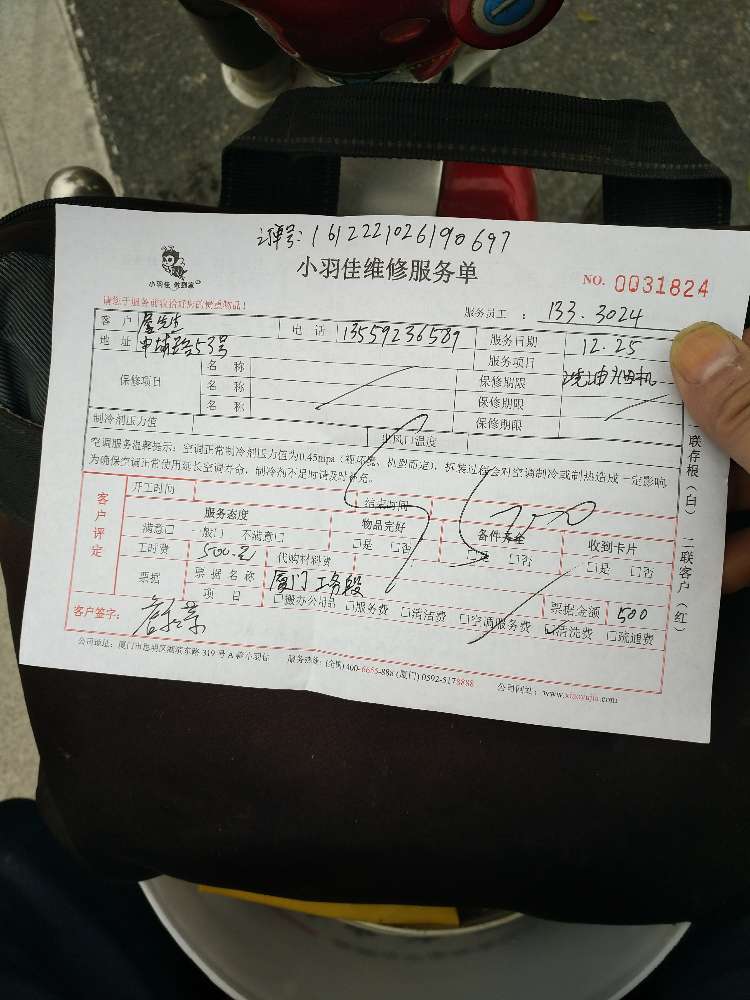 订单号: 161222102619​0697
小羽佳 救到家
小羽佳维修服务单
NO. 0031824
请您于服务前收拾好您的贵重物品！
服务员工 ： 133.3024
客 户 电 话 13559236589 服务日期 12.25
地 址 53号 服务项目 洗油烟机
保修项目
名 称 保修期限
名 称 保修期限
名 称 保修期限
制冷剂压力值 出风口温度
空调服务温馨提示：空调正常制冷剂压力值为0.45mpa（视环境、机型而定），拆装过程会对空调制冷或制热造成一定影响
为确保空调正常使用延长空调寿命，制冷剂不足时请及时补充。
客户评定
开工时间 结束时间
服务态度 物品完好 备件齐全 收到卡片
满意□ 一般□ 不满意□ □是 □否 □是 □否 □是 □否
工时费 500.元 代购材料费
票据 票据名称 厦门 票据金额 500
项 目 □搬办公用品 □服务费 □清洁费 □空调服务费 □清洗费 □疏通费
客户签字：
公司地址：厦门市思明区湖滨东路 319 号 A 栋小羽佳 服务热线：(全国)400-6655-888 (厦门) 0592-5178888 公司网址：www.xiaoyujia.com
一联存根（白） 二联客户（红）